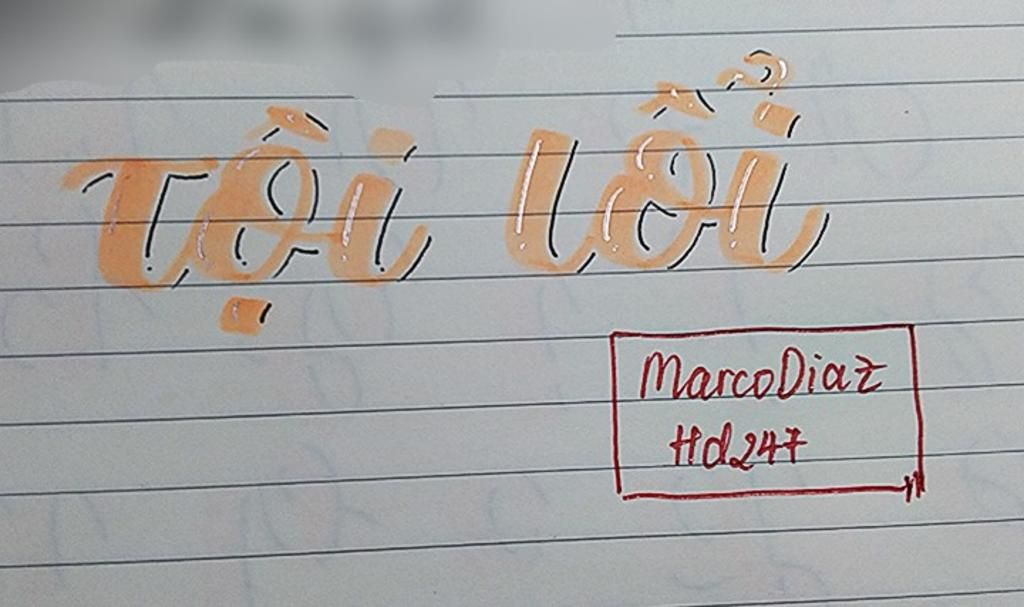 Tội lỗi
MarcoDiaz
Hd247